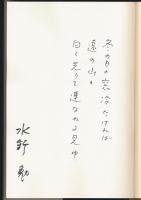 冬の日の空冷たければ
遠の山々
白く光りて連なる見ゆ
水野